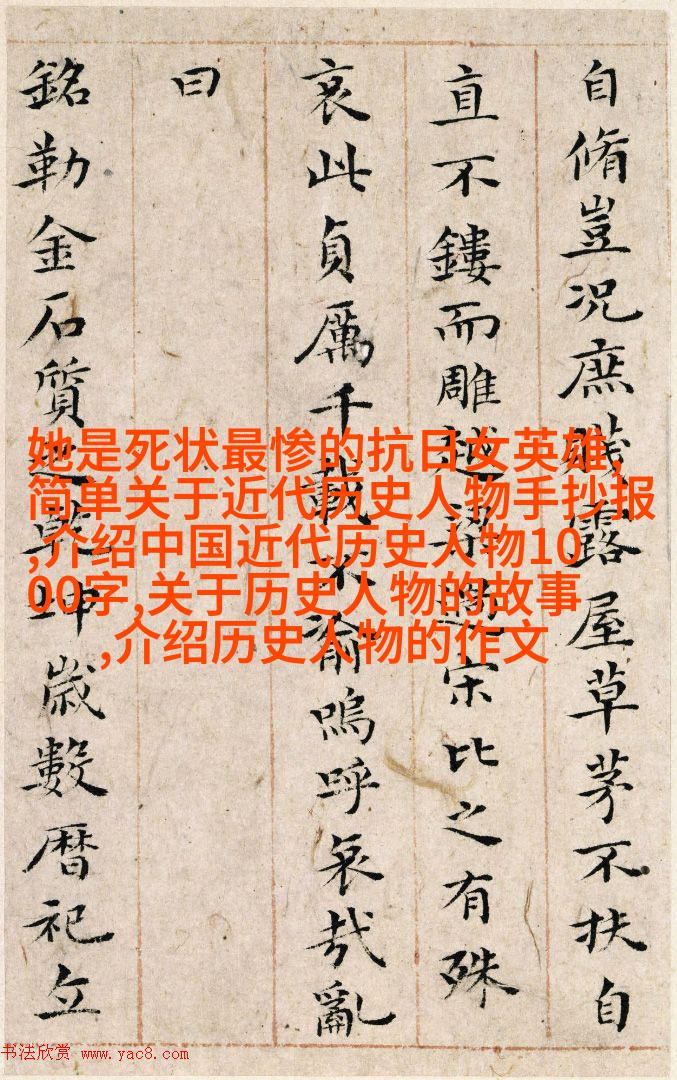 自脩豈況庶賤露屋草茅不扶自
直不鏤而雕越梁過宋比之有殊
哀此貞厲千載不渝嗚呼哀哉亂
曰
銘勒金石質之乾坤歲數曆祀立
她是死状最惨的抗日女英雄,
简单关于近代历史人物手抄报
,介绍中国近代历史人物10
00字,关于历史人物的故事
,介绍历史人物的作文
书法欣赏 www.yac8.com